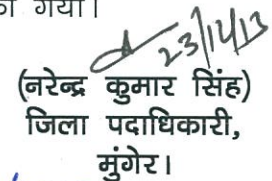 गया।
23/12/13
(नरेन्द्र कुमार सिंह)
जिला पदाधिकारी,
मुंगेर।